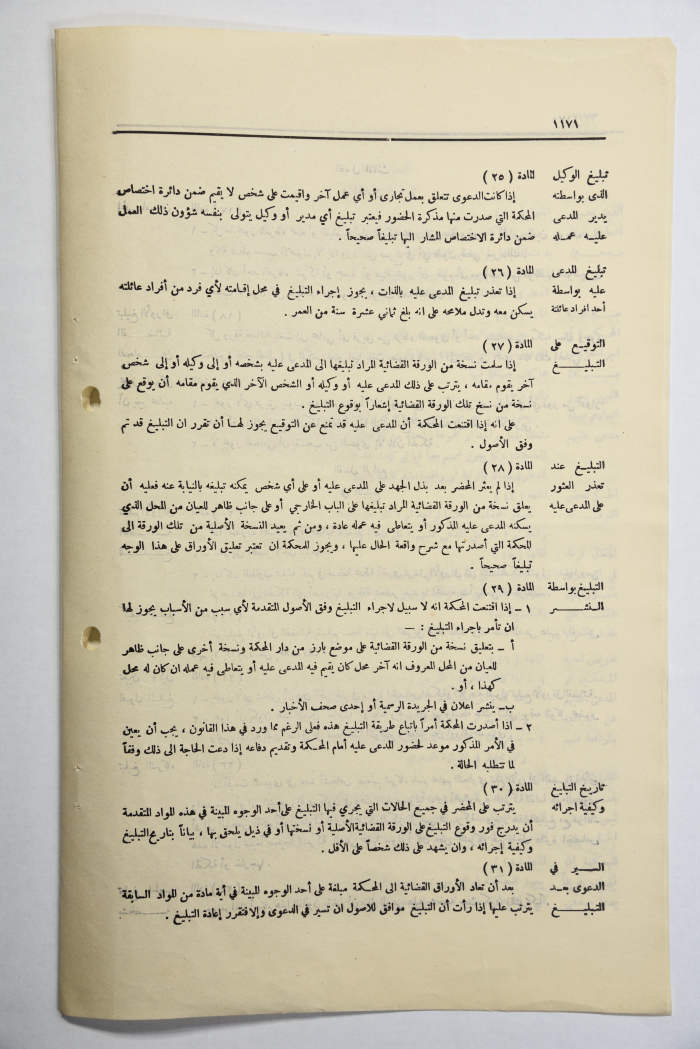 ١١٧١
تبليغ الوكيل المادة (٢٥)
الذى بواسطته إذا كانت الدعوى تتعلق بعمل تجارى أو أي عمل آخر واقيمت على شخص لا يقيم ضمن دائرة اختصاص
يدير المدعى المحكمة التي صدرت منها مذكرة الحضور فيعتبر تبليغ أي مدير أو وكيل يتولى بنفسه شؤون ذلك العمل
عليه عمله ضمن دائرة الاختصاص المشار اليها تبليغاً صحيحاً .
تبليغ المدعى المادة (٢٦)
عليه بواسطة إذا تعذر تبليغ المدعى عليه بالذات ، يجوز إجراء التبليغ في محل إقامته لأي فرد من أفراد عائلته
أحد افراد عائلته يسكن معه وتدل ملامحه على انه بلغ ثماني عشرة سنة من العمر .
التوقيع على المادة (٢٧)
التبليغ إذا سلمت نسخة من الورقة القضائية المراد تبليغها الى المدعى عليه بشخصه أو إلى وكيله أو إلى شخص
آخر يقوم مقامه ، يترتب على ذلك المدعى عليه أو وكيله أو الشخص الآخر الذي يقوم مقامه أن يوقع على
نسخة من نسخ تلك الورقة القضائية إشعاراً بوقوع التبليغ .
على انه إذا اقتنعت المحكمة أن المدعى عليه قد تمنع عن التوقيع يجوز لها أن تقرر ان التبليغ قد تم
وفق الأصول .
التبليغ عند المادة (٢٨)
تعذر العثور إذا لم يعثر المحضر بعد بذل الجهد على المدعى عليه أو على أي شخص يمكنه تبليغه بالنيابة عنه فعليه أن
على المدعى عليه يعلق نسخة من الورقة القضائية المراد تبليغها على الباب الخارجي أو على جانب ظاهر للعيان من المحل الذي
يسكنه المدعى عليه المذكور أو يتعاطى فيه عمله عادة ، ومن ثم يعيد النسخة الأصلية من تلك الورقة الى
المحكمة التي أصدرتها مع شرح واقعة الحال عليها ، ويجوز للمحكمة ان تعتبر تعليق الأوراق على هذا الوجه
تبليغاً صحيحاً .
التبليغ بواسطة المادة (٢٩)
النشر ١ – إذا اقتنعت المحكمة انه لا سبيل لاجراء التبليغ وفق الأصول المتقدمة لأي سبب من الأسباب يجوز لها
ان تأمر باجراء التبليغ : —
أ – بتعليق نسخة من الورقة القضائية على موضع بارز من دار المحكمة ونسخة أخرى على جانب ظاهر
للعيان من المحل المعروف انه آخر محل كان يقيم فيه المدعى عليه أو يتعاطى فيه عمله ان كان له محل
كهذا ، أو .
ب– بنشر اعلان في الجريدة الرسمية أو إحدى صحف الأخبار .
٢ – اذا أصدرت المحكمة أمراً باتباع طريقة التبليغ هذه فعلى الرغم مما ورد في هذا القانون ، يجب أن يعين
في الأمر المذكور موعد لحضور المدعى عليه أمام المحكمة وتقديم دفاعه إذا دعت الحاجة الى ذلك وفقاً
لما تتطلبه الحالة .
تاريخ التبليغ المادة (٣٠)
وكيفية اجرائه يترتب على المحضر في جميع الحالات التي يجري فيها التبليغ على أحد الوجوه المبينة في هذه المواد المتقدمة
أن يدرج فور وقوع التبليغ على الورقة القضائية الأصلية أو نسختها أو في ذيل يلحق بها ، بياناً بتاريخ التبليغ
وكيفية إجرائه ، وان يشهد على ذلك شخصاً على الأقل .
السير في المادة (٣١)
الدعوى بعد بعد أن تعاد الأوراق القضائية الى المحكمة مبلغة على أحد الوجوه المبينة في أية مادة من المواد السابقة
التبليغ يترتب عليها إذا رأت أن التبليغ موافق للاصول ان تسير في الدعوى وإلا فتقرر إعادة التبليغ .